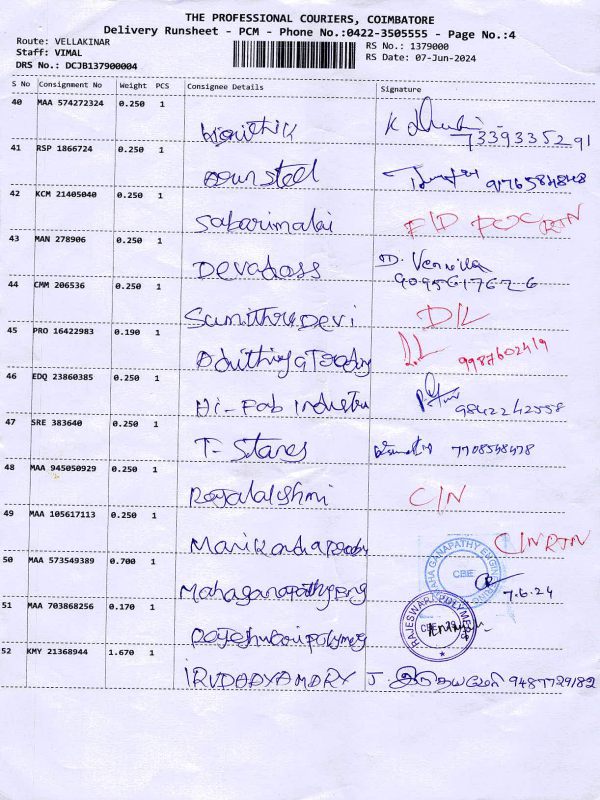 THE PROFESSIONAL COURIERS, COIMBATORE
Delivery Runsheet - PCM - Phone No.:0422-3505555 - Page No.:4
Route: VELLAKINAR
Staff: VIMAL
DRS No.: DCJB137900004
RS No.: 1379000
RS Date: 07-Jun-2024
S No Consignment No Weight PCS Consignee Details Signature
40 MAA 574272324 0.250 1
K 7339335291
41 RSP 1866724 0.250 1
steel 9176584848
42 KCM 21405040 0.250 1
Sabarimalai F/D FOC RTN
43 MAN 278906 0.250 1
Devadoss D. Vennila
9095617626
44 CMM 206536 0.250 1
Sumithra Devi D/L
45 PRO 16422983 0.190 1
9987602419
46 EDQ 23860385 0.250 1
Hi-Fab Industri 9842242558
47 SRE 383640 0.250 1
T-Stanes 7708548478
48 MAA 945050929 0.250 1
Rajalakshmi C/N
49 MAA 105617113 0.250 1
C/N RTN
50 MAA 573549389 0.700 1
Mahaganapathy eng MAHA GANAPATHY ENGINEERING CBE 7.6.24
51 MAA 703868256 0.170 1
Rajeshwari polymers RAJESWARI POLYMERS CBE-29
52 KMY 21368944 1.670 1
J. 9487729182